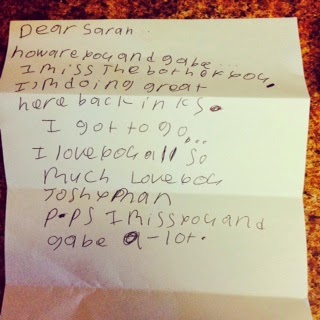 Dear Sarah
howareyouandgabe...
I miss The bother you.
I'm doing great
here back in KS.
I got to go...
I love you all so
much Love you
Joshyman
P.PS I miss you and
gabe a-lot.